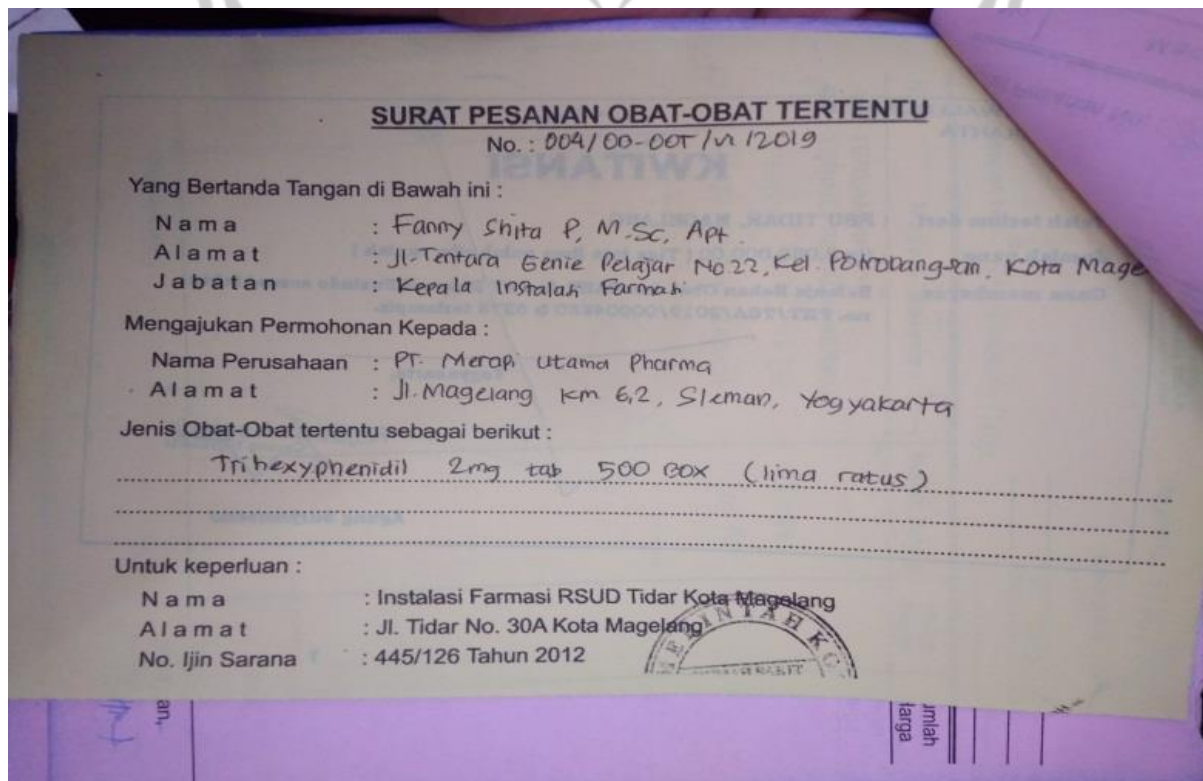 SURAT PESANAN OBAT-OBAT TERTENTU
No. : 004/00-OOT/VI/2019
Yang Bertanda Tangan di Bawah ini :
Nama : Fanny Shita P, M.Sc, Apt
Alamat : Jl. Tentara Genie Pelajar No.22, Kel. Potrobang-san, Kota Mage
Jabatan : Kepala Instalasi Farmasi
Mengajukan Permohonan Kepada :
Nama Perusahaan : PT. Merapi Utama Pharma
Alamat : Jl. Magelang km 6,2, Sleman, Yogyakarta
Jenis Obat-Obat tertentu sebagai berikut :
Trihexyphenidil 2mg tab 500 BOX (lima ratus)
Untuk keperluan :
Nama : Instalasi Farmasi RSUD Tidar Kota Magelang
Alamat : Jl. Tidar No. 30A Kota Magelang
No. Ijin Sarana : 445/126 Tahun 2012
KWITANSI
an,
umlah
Harga